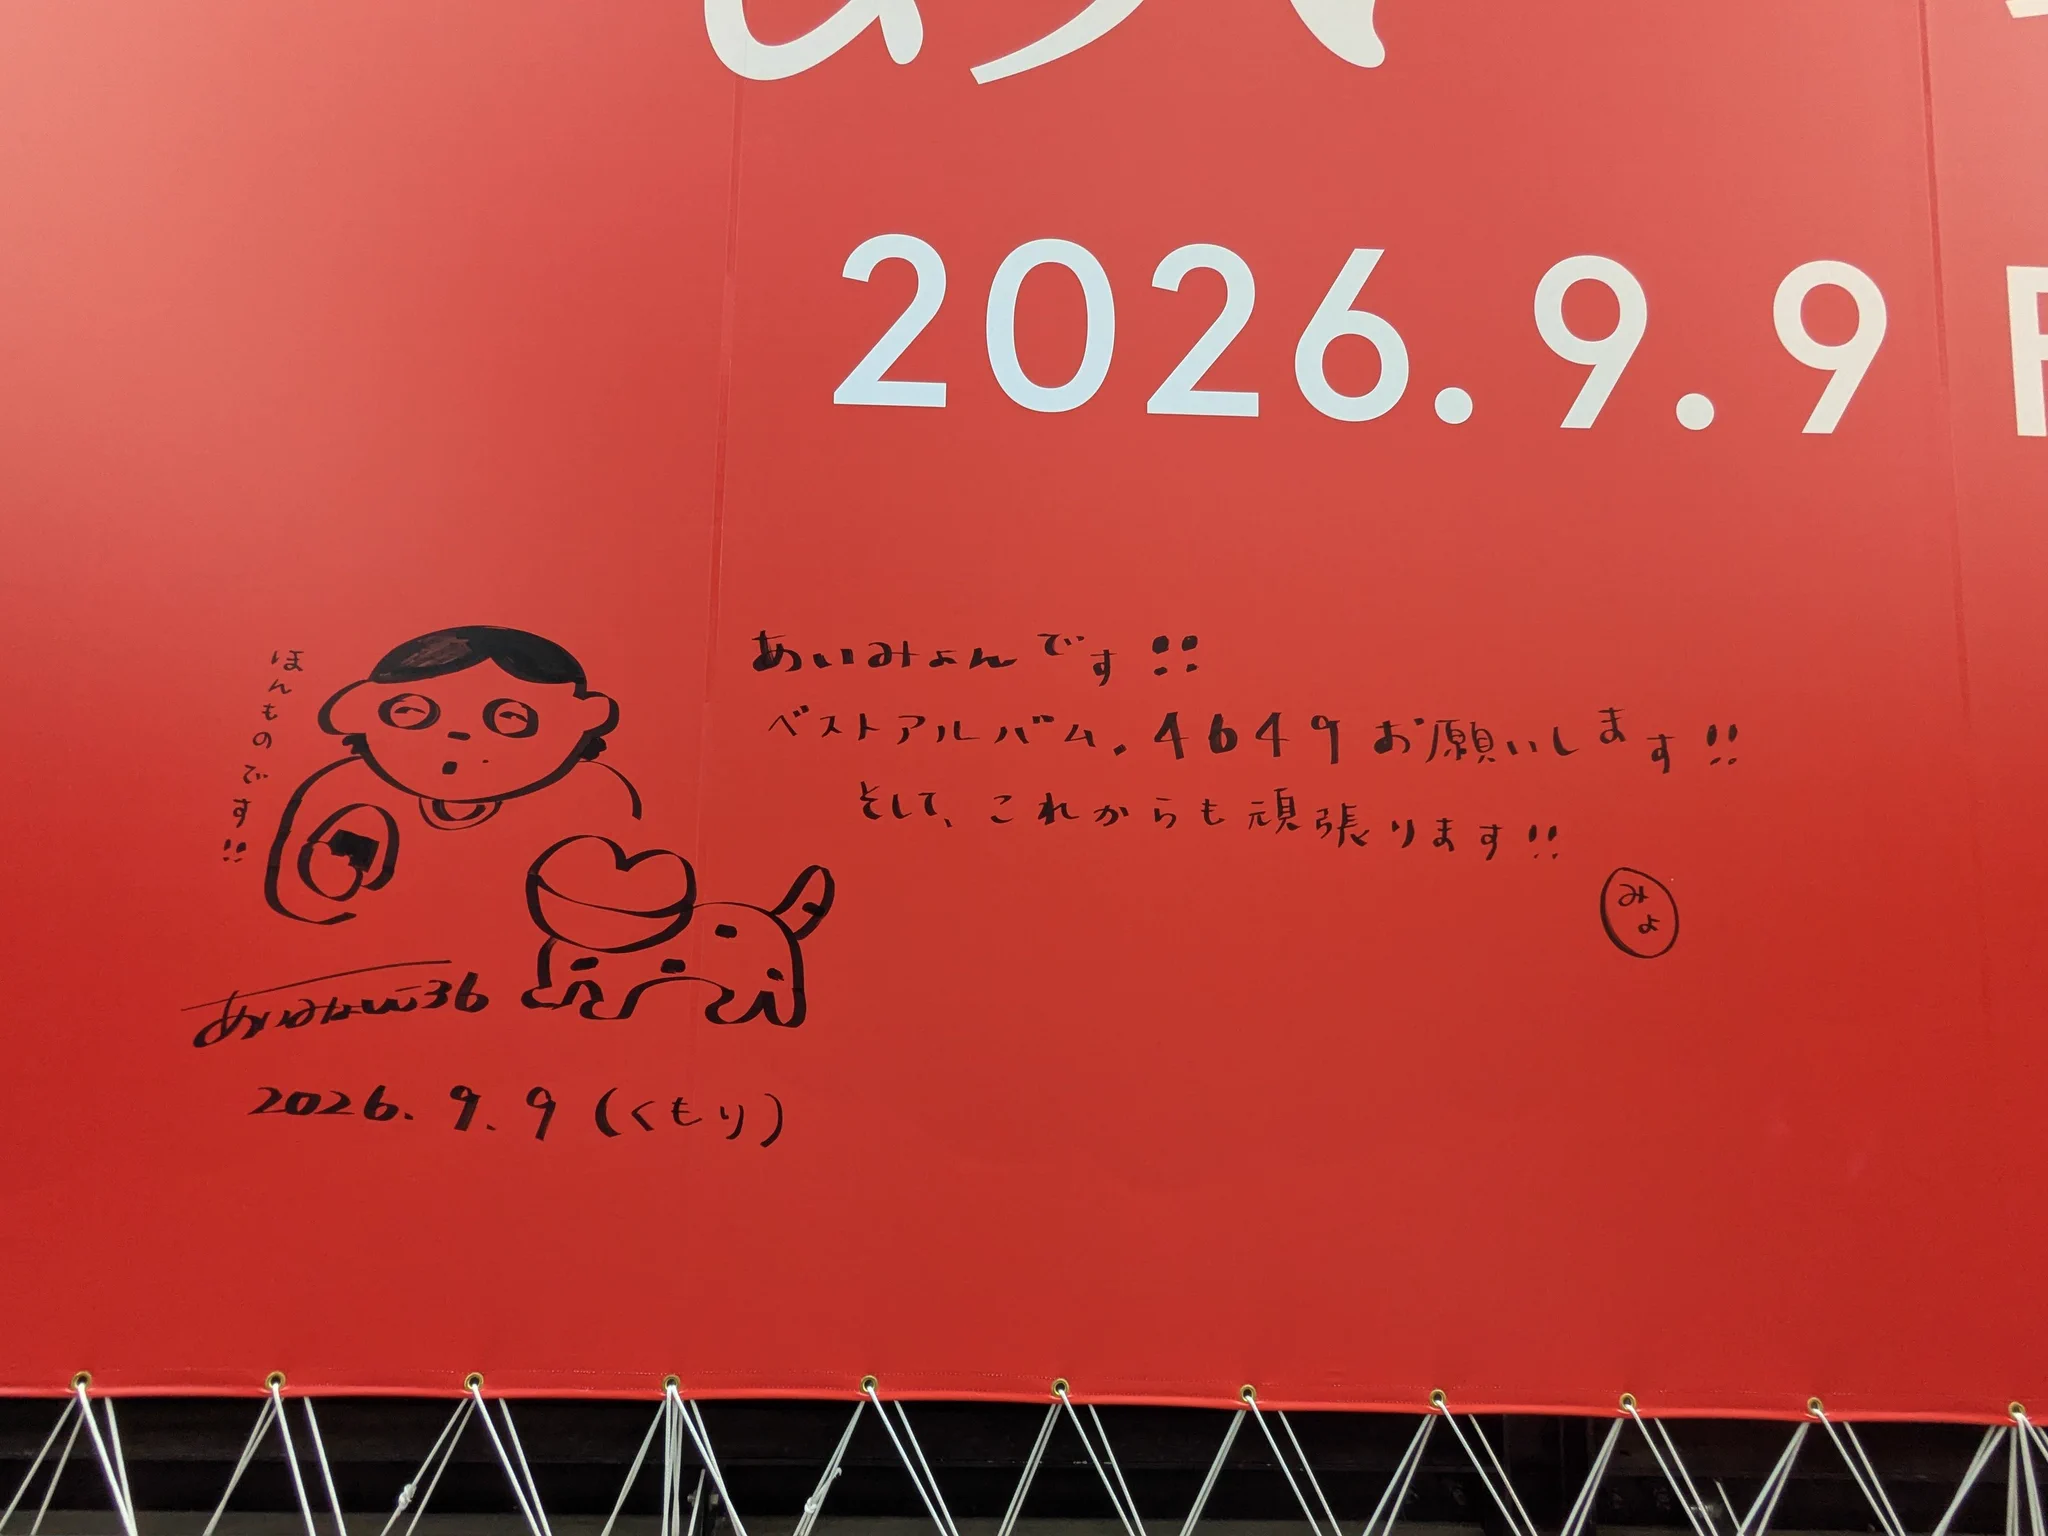 2026.9.9
ほんものです!!
あいみょんです!!
ベストアルバム、4649お願いします!!
そして、これからも頑張ります!!
みょ
2026.9.9(くもり)